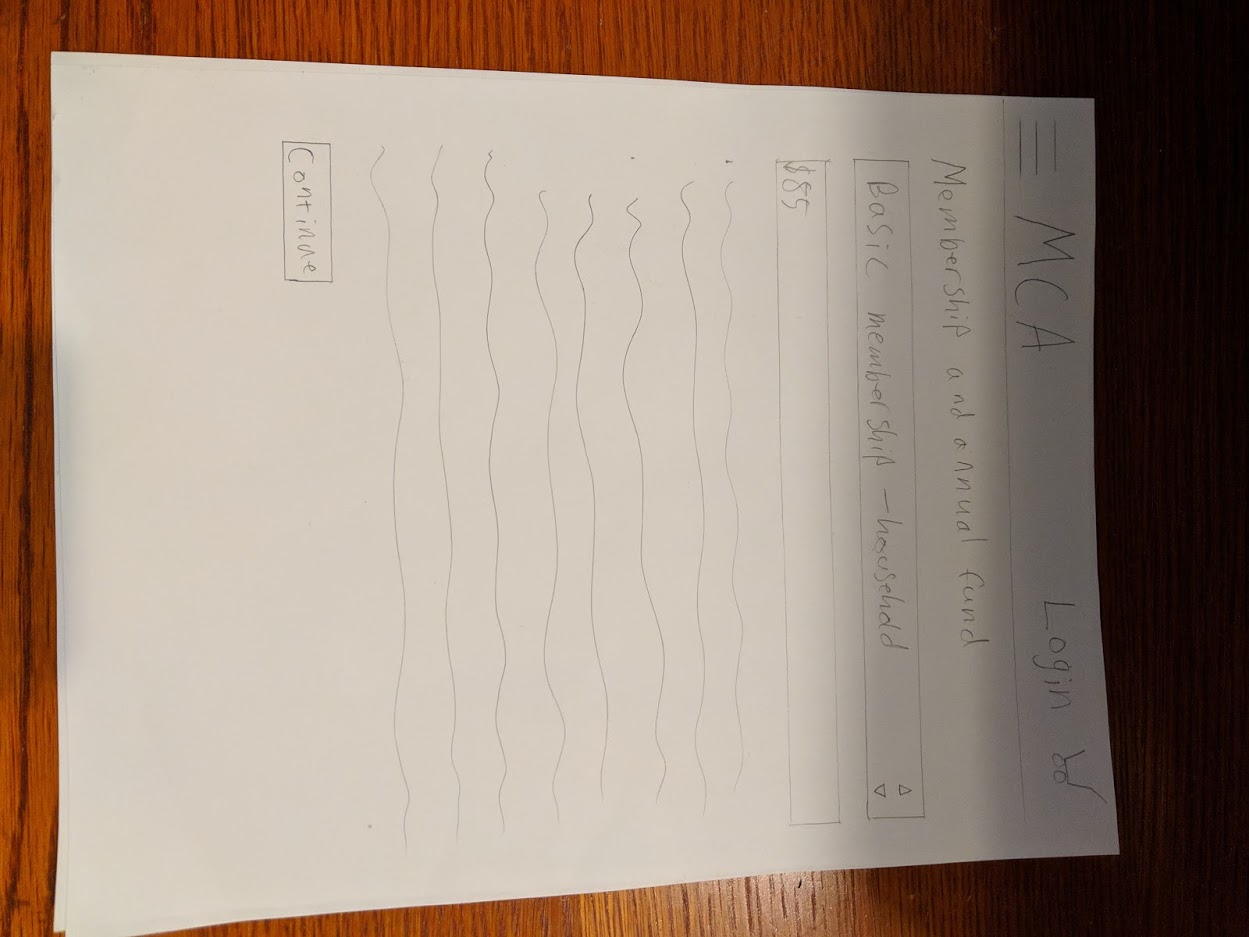 MCA Login
Membership and annual fund
Basic membership - household
$85
Continue